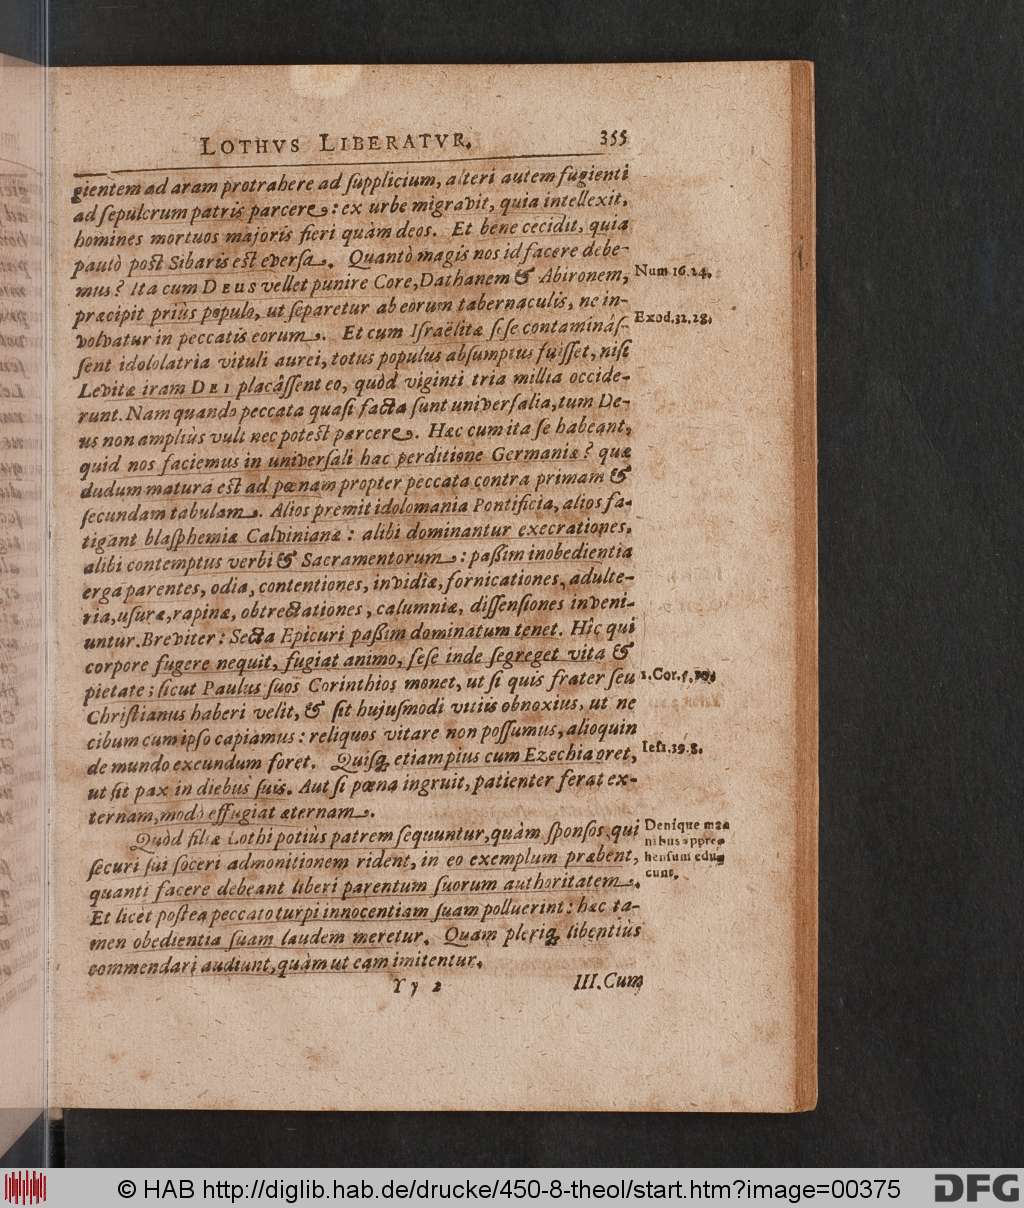 LOTHVS LIBERATVR. 355
gientem ad aram protrahere ad ſupplicium, alteri autem fugienti
ad ſepulcrum patris parcere: ex urbe migravit, quia intellexit,
homines mortuos majoris fieri quàm deos. Et bene cecidit, quia
paulò post Sibaris est everſa. Quantò magis nos id facere debe-
mus? Ita cum DEUS vellet punire Core, Dathanem & Abironem, Num 16.24.
præcipit priùs populo, ut ſeparetur ab eorum tabernaculis, ne in-
volvatur in peccatis eorum. Et cum Iſraëlitæ ſeſe contaminâſ- Exod.32.28.
ſent idololatria vituli aurei, totus populus abſumptus fuiſſet, niſi
Levitæ iram DEI placâſſent eo, quòd viginti tria millia occide-
runt. Nam quando peccata quaſi facta ſunt univerſalia, tum De-
us non ampliùs vult nec potest parcere. Hæc cum ita ſe habeant,
quid nos faciemus in univerſali hac perditione Germaniæ? quæ
dudum matura est ad pœnam propter peccata contra primam &
ſecundam tabulam. Alios premit idolomania Pontificia, alios fa-
tigant blaſphemiæ Calvinianæ: alibi dominantur execrationes,
alibi contemptus verbi & Sacramentorum: paßim inobedientia
erga parentes, odia, contentiones, invidiæ, fornicationes, adulte-
ria, uſuræ, rapinæ, obtrectationes, calumniæ, diſſenſiones inveni-
untur. Breviter: Secta Epicuri paßim dominatum tenet. Hîc qui
corpore fugere nequit, fugiat animo, ſeſe inde ſegreget vita &
pietate; ſicut Paulus ſuos Corinthios monet, ut ſi quis frater ſeu 1.Cor.5.
Chriſtianus haberi velit, & ſit hujuſmodi vitiis obnoxius, ut ne
cibum cum ipſo capiamus: reliquos vitare non poſſumus, alioquin
de mundo exeundum foret. Quiſq; etiam pius cum Ezechia oret, Ieſ.39.8.
ut ſit pax in diebus ſuis. Aut ſi pœna ingruit, patienter ferat ex-
ternam, modò effugiat æternam.
Quòd filiæ Lothi potiùs patrem ſequuntur, quàm ſponſos, qui Denique ma-
ſecuri ſui ſoceri admonitionem rident, in eo exemplum præbent, nibus appre-
quanti facere debeant liberi parentum ſuorum authoritatem. henſum edu-
cunt.
Et licèt poſtea peccato turpi innocentiam ſuam polluerint: hæc ta-
men obedientia ſuam laudem meretur. Quam pleriq; libentiùs
commendari audiunt, quàm ut eam imitentur.
Yy 2 III. Cum
© HAB http://diglib.hab.de/drucke/450-8-theol/start.htm?image=00375 DFG